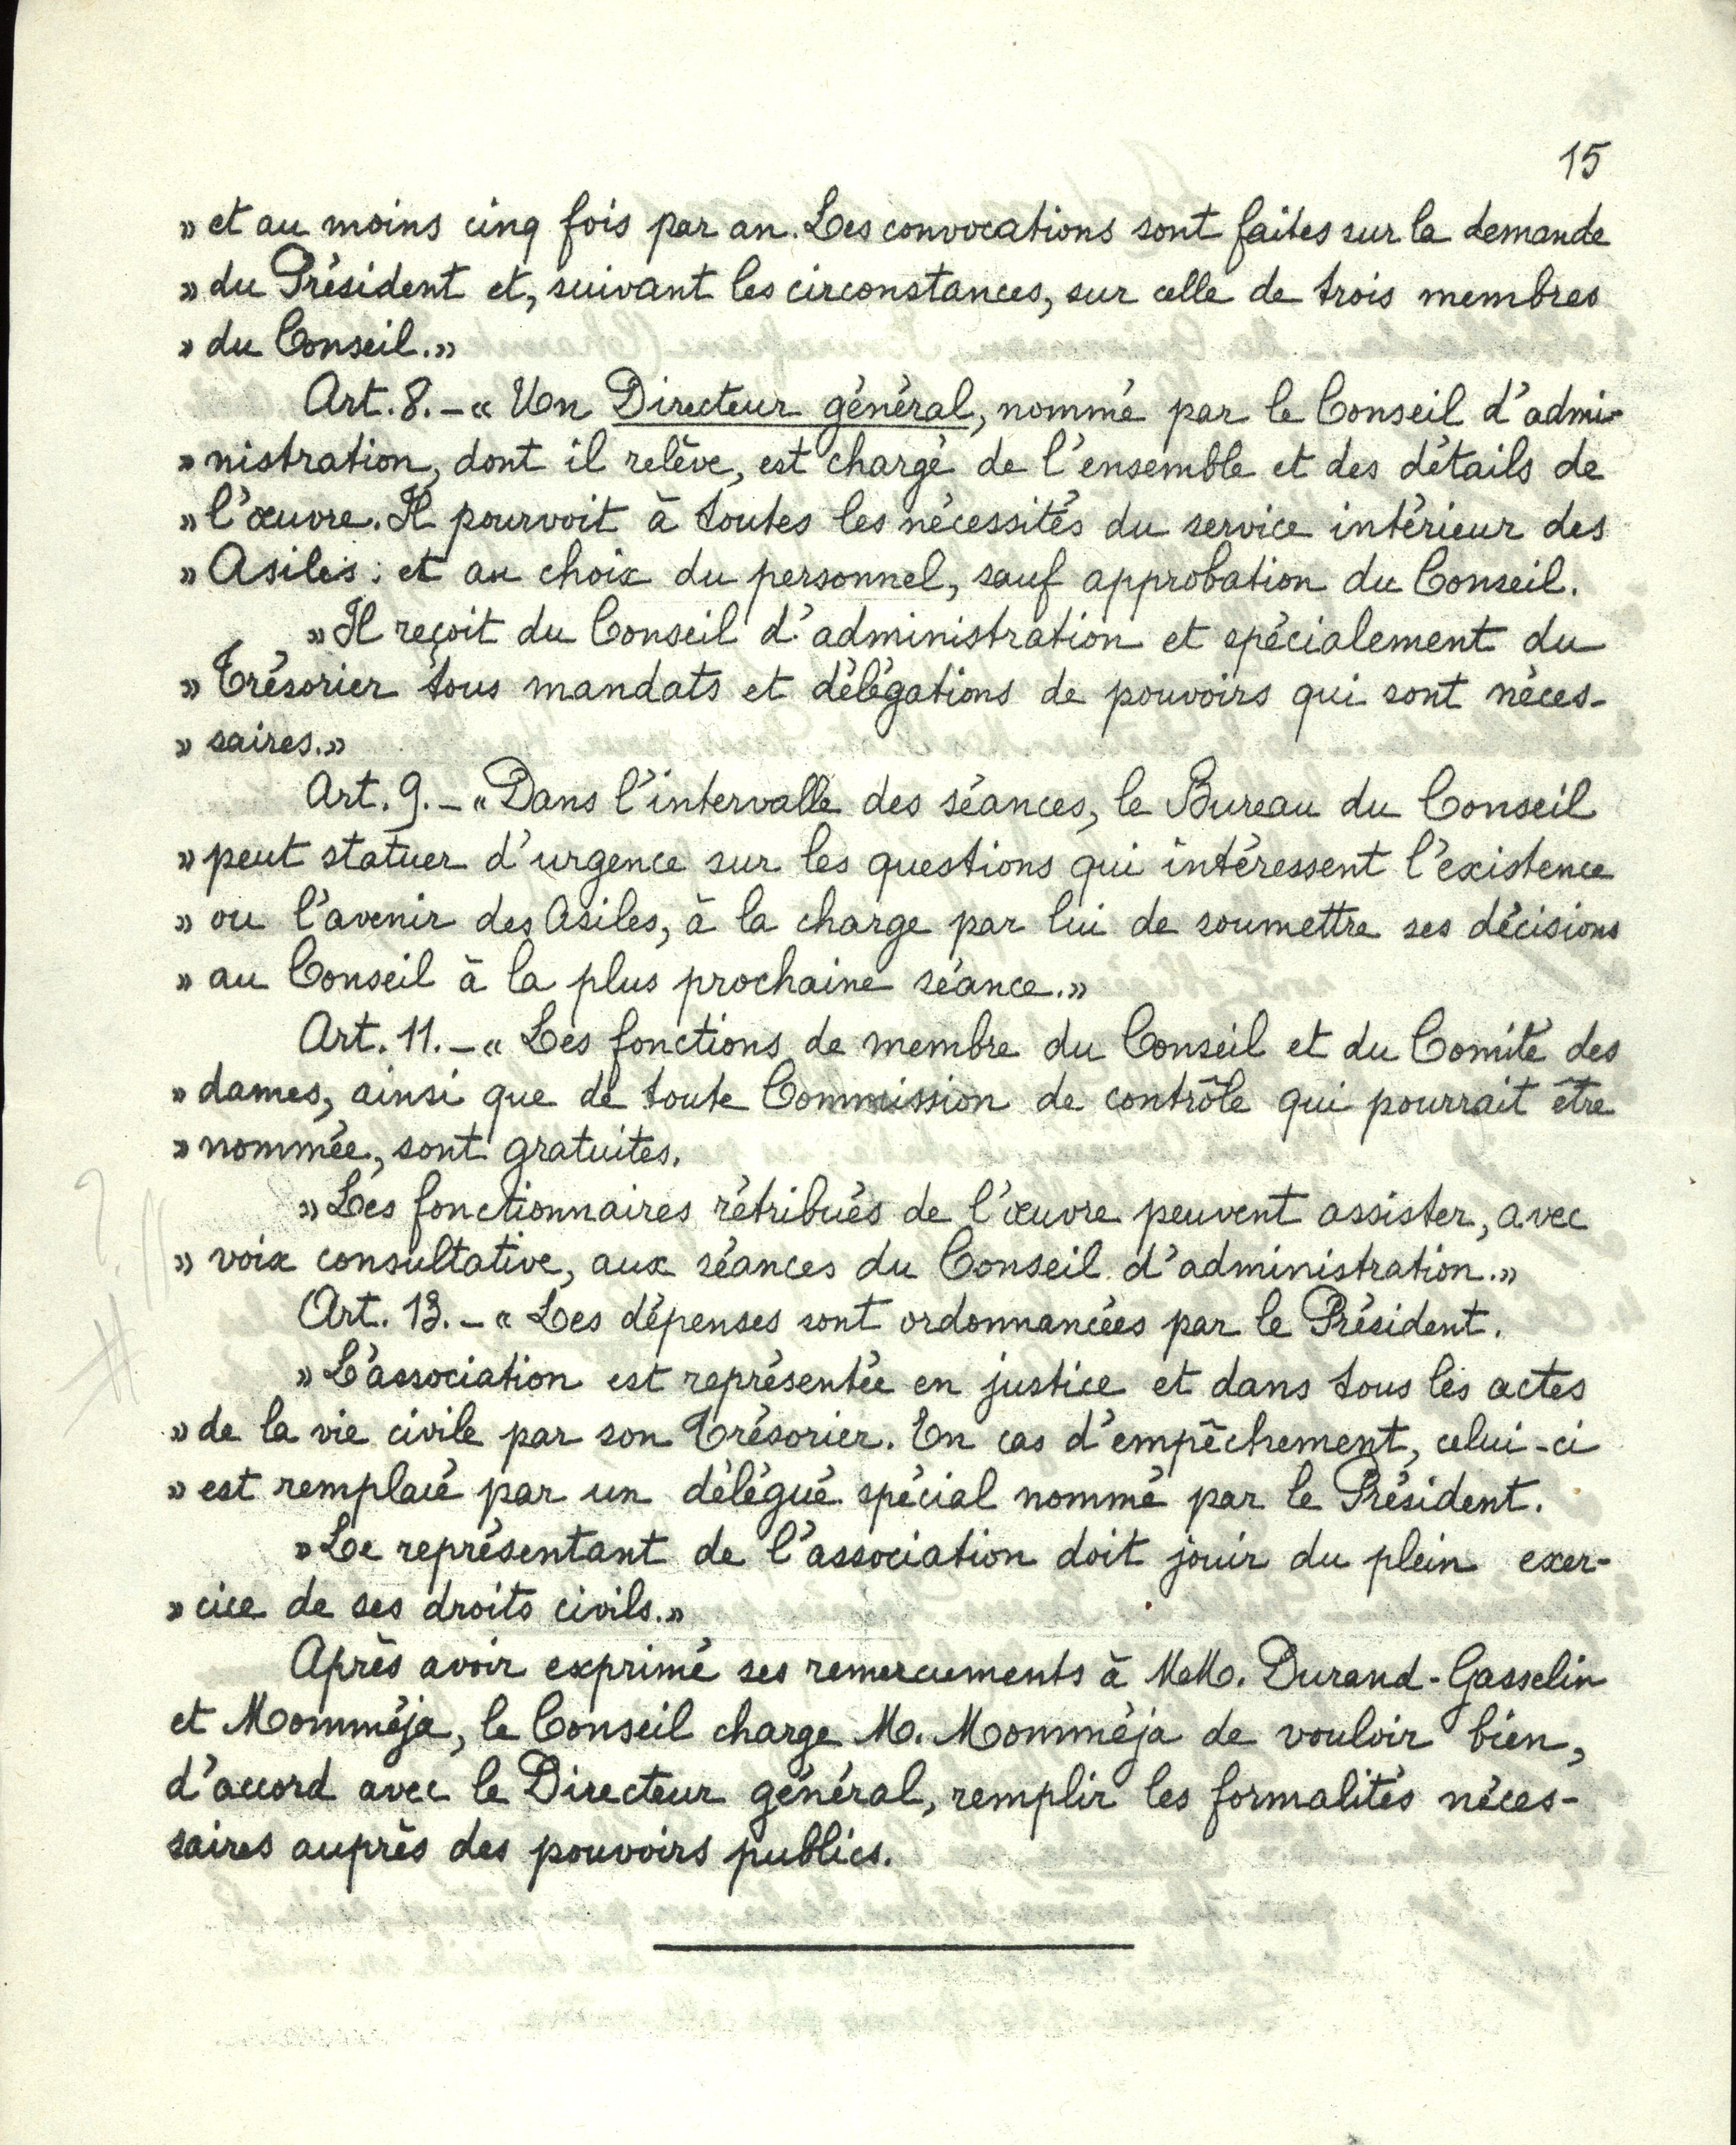 15
» et au moins cinq fois par an. Les convocations sont faites sur la demande
» du Président et, suivant les circonstances, sur celle de trois membres
» du Conseil.»
Art. 8. – « Un Directeur général, nommé par le Conseil d'admi-
» nistration, dont il relève, est chargé de l'ensemble et des détails de
» l'œuvre. Il pourvoit à toutes les nécessités du service intérieur des
» Asiles; et au choix du personnel, sauf approbation du Conseil.
» Il reçoit du Conseil d'administration et spécialement du
» Trésorier tous mandats et délégations de pouvoirs qui sont néces-
» saires.»
Art. 9. – « Dans l'intervalle des séances, le Bureau du Conseil
» peut statuer d'urgence sur les questions qui intéressent l'existence
» ou l'avenir des Asiles, à la charge par lui de soumettre ses décisions
» au Conseil à la plus prochaine séance.»
Art. 11. – « Les fonctions de membre du Conseil et du Comité des
» dames, ainsi que de toute Commission de contrôle qui pourrait être
» nommée, sont gratuites.
» Les fonctionnaires rétribués de l'œuvre peuvent assister, avec
» voix consultative, aux séances du Conseil d'administration.»
Art. 13. – « Les dépenses sont ordonnancées par le Président.
» L'association est représentée en justice et dans tous les actes
» de la vie civile par son Trésorier. En cas d'empêchement, celui-ci
» est remplacé par un délégué spécial nommé par le Président.
» Le représentant de l'association doit jouir du plein exer-
» cice de ses droits civils.»
Après avoir exprimé ses remerciements à MM. Durand-Gasselin
et Momméja, le Conseil charge M. Momméja de vouloir bien,
d'accord avec le Directeur général, remplir les formalités néces-
saires auprès des pouvoirs publics.